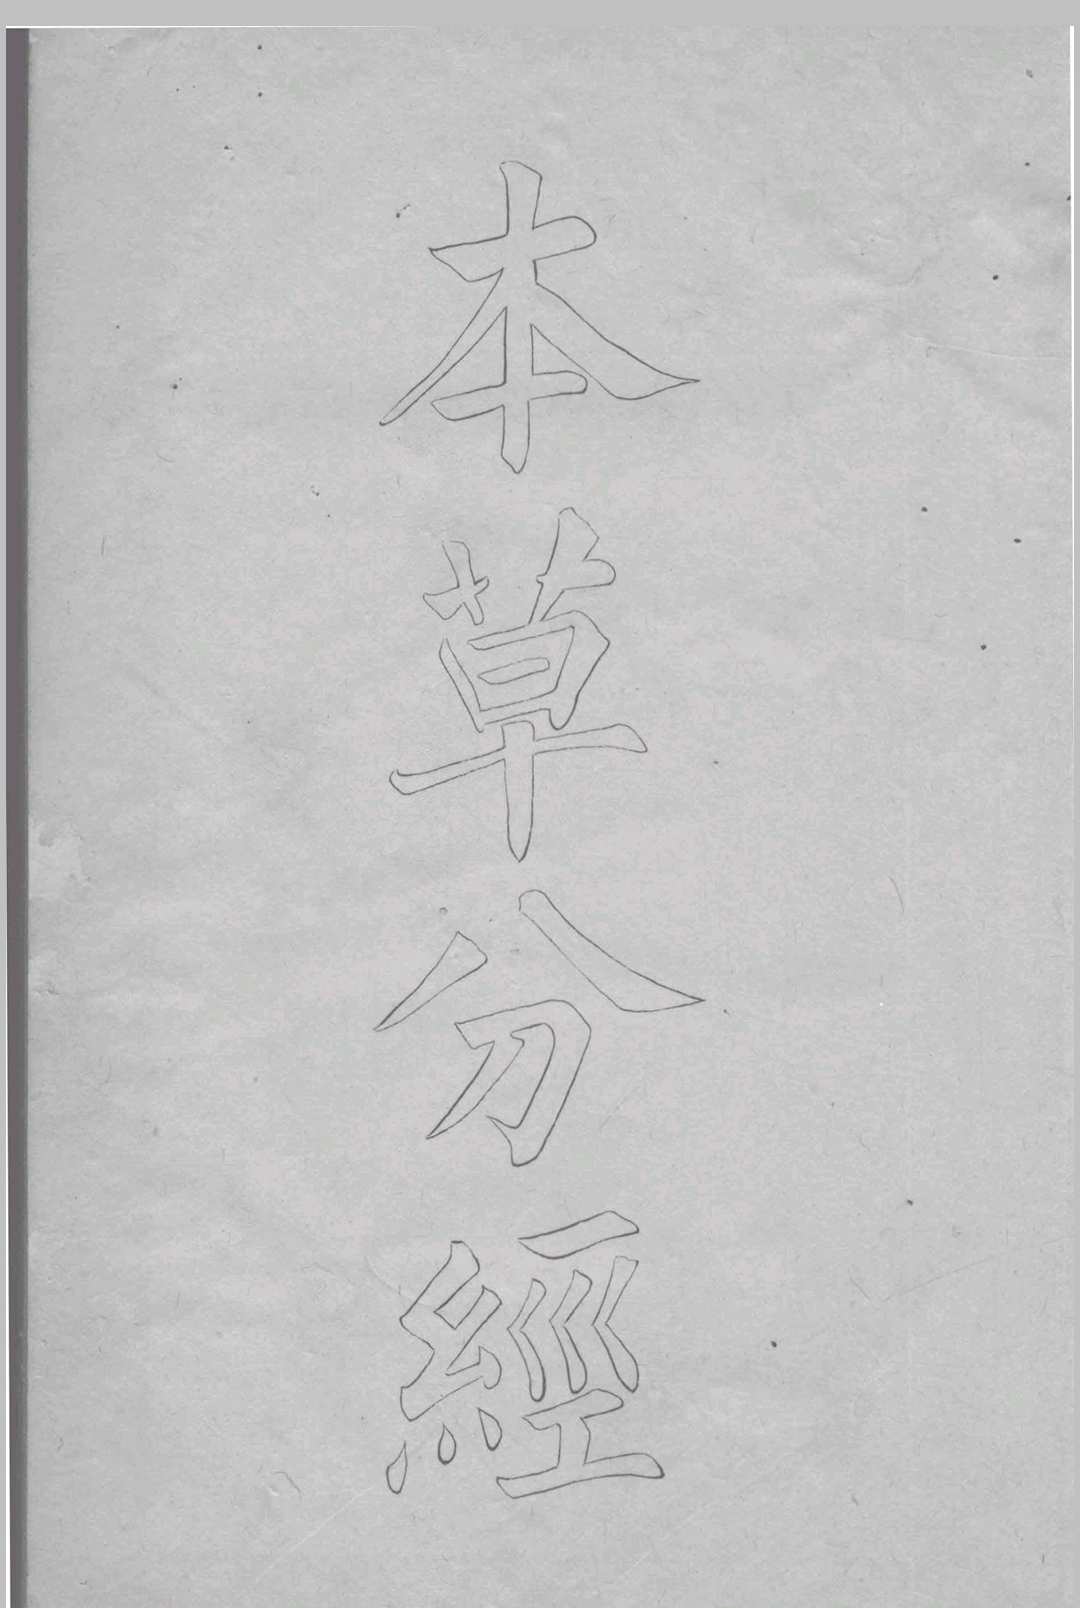 本草分經